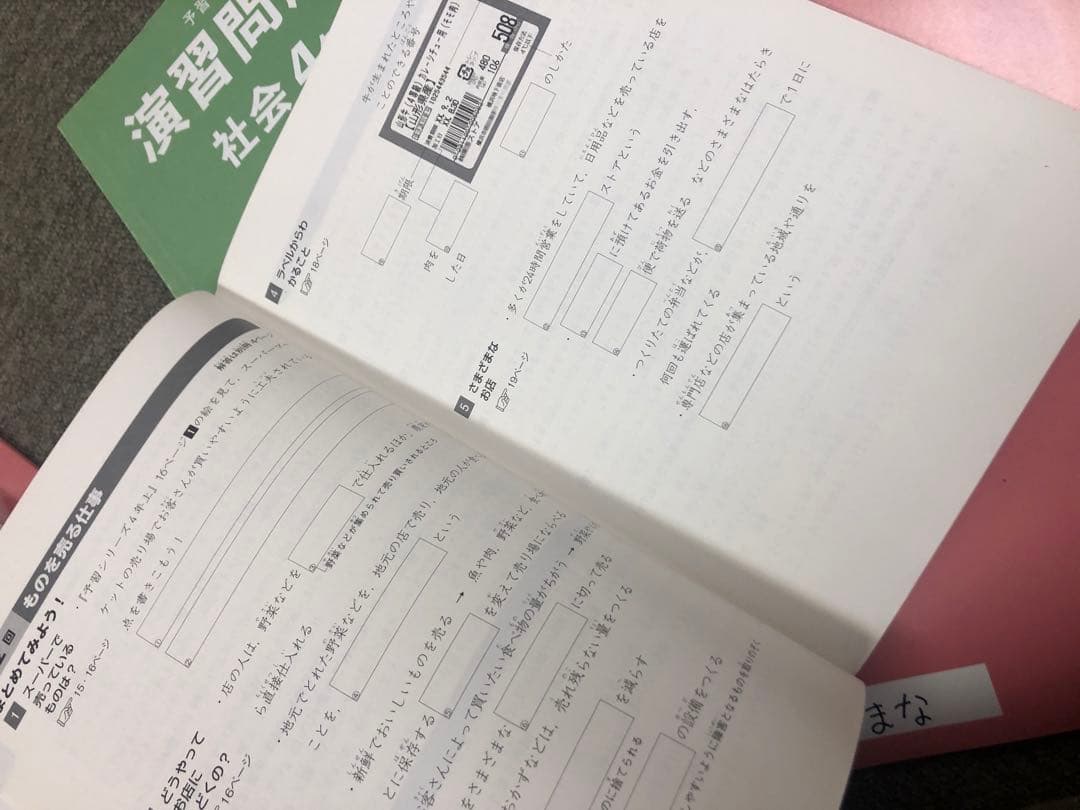 予習
演習問
社会4
回 ものを売る仕事
まとめてみよう！
解答は別冊4ページ
1 スーパーで
売っている
ものは？
15・16ページ
・『予習シリーズ4年上』16ページ1の絵を見て、スーパーマ
ケットの売り場でお客さんが買いやすいように工夫されてい
点を書きこもう！
どうやって
お店に
どくの？
16ページ
・店の人は、野菜などを
で仕入れるほか、
野菜などが集められて売り買いされるところ
ら直接仕入れる
・地元でとれた野菜などを、地元の店で売り、地元の人が
ことを、
という
・新鮮でおいしいものを売る → 魚や肉、野菜など、
とに保存する
を変えて売り場にならべる
客さんによって買いたい食べ物の量がちがう → 野菜
をさまざまな
に切って売る
おかずなどは、売れ残らない量をつくる
を減らす
のに捨てられる
の設備をつくる
しやすいように障害となるものを取りのぞく
4 ラベルからわ
かること
18ページ
牛が生まれたところや
ことのできる番号
山形牛(4等級)カレーシチュー用(モモ角)
[山形県産]
508
480
106
期限
肉を
した日
のしかた
5 さまざまな
お店
19ページ
・多くが24時間営業をしていて、日用品などを売っている店を
ストアという
・
に預けてあるお金を引き出す、
便で荷物を送る などのさまざまなはたらき
・つくりたての弁当などが、
で1日に
何回も運ばれてくる
・専門店などの店が集まっている地域や通りを
という
まな